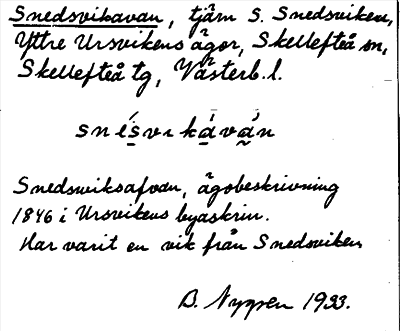 Snedsvikavan, tjärn S. Snedsviken,
Yttre Ursvikens ägor, Skellefteå sn,
Skellefteå tg, Västerb. l.
snésvikáván
Snedswiksafvan, ägobeskrivning
1846 i Ursvikens byaskrin.
Har varit en vik från Snedsviken
B. Nygren 1933.